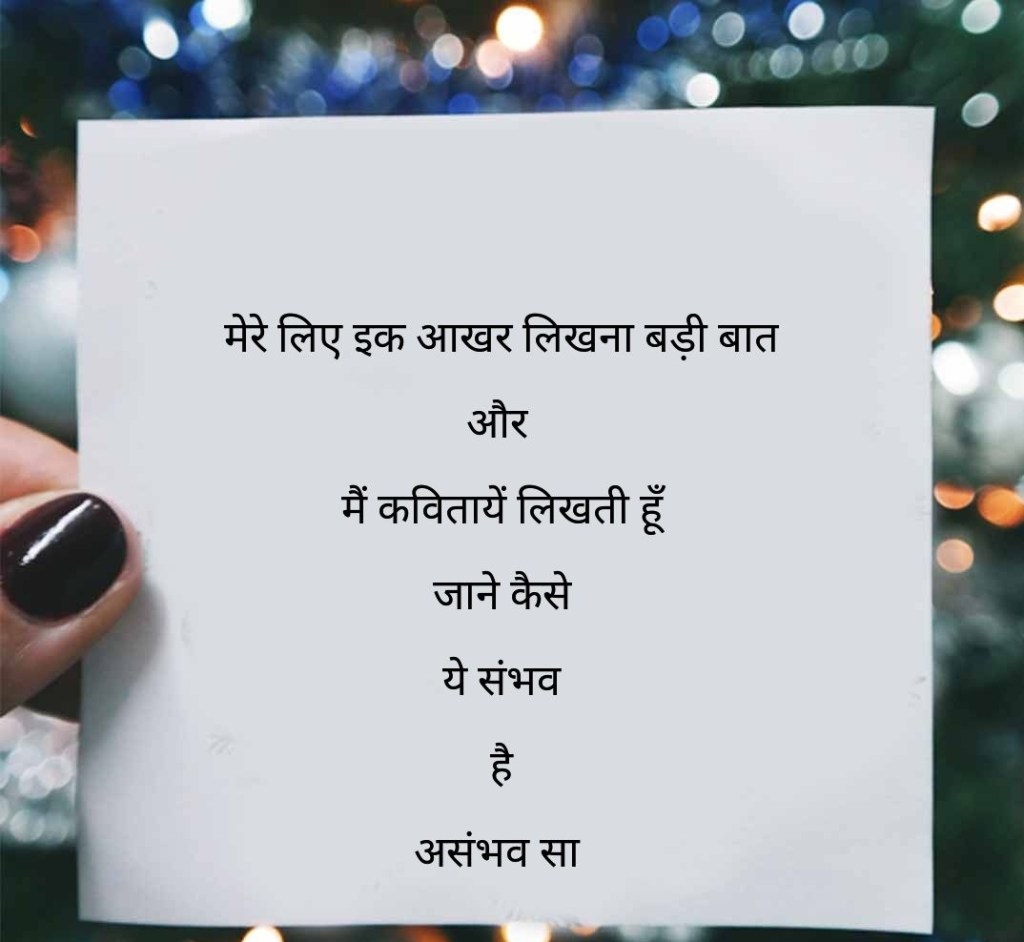 मेरे लिए इक आखर लिखना बड़ी बात
और
मैं कवितायें लिखती हूँ
जाने कैसे
ये संभव
है
असंभव सा